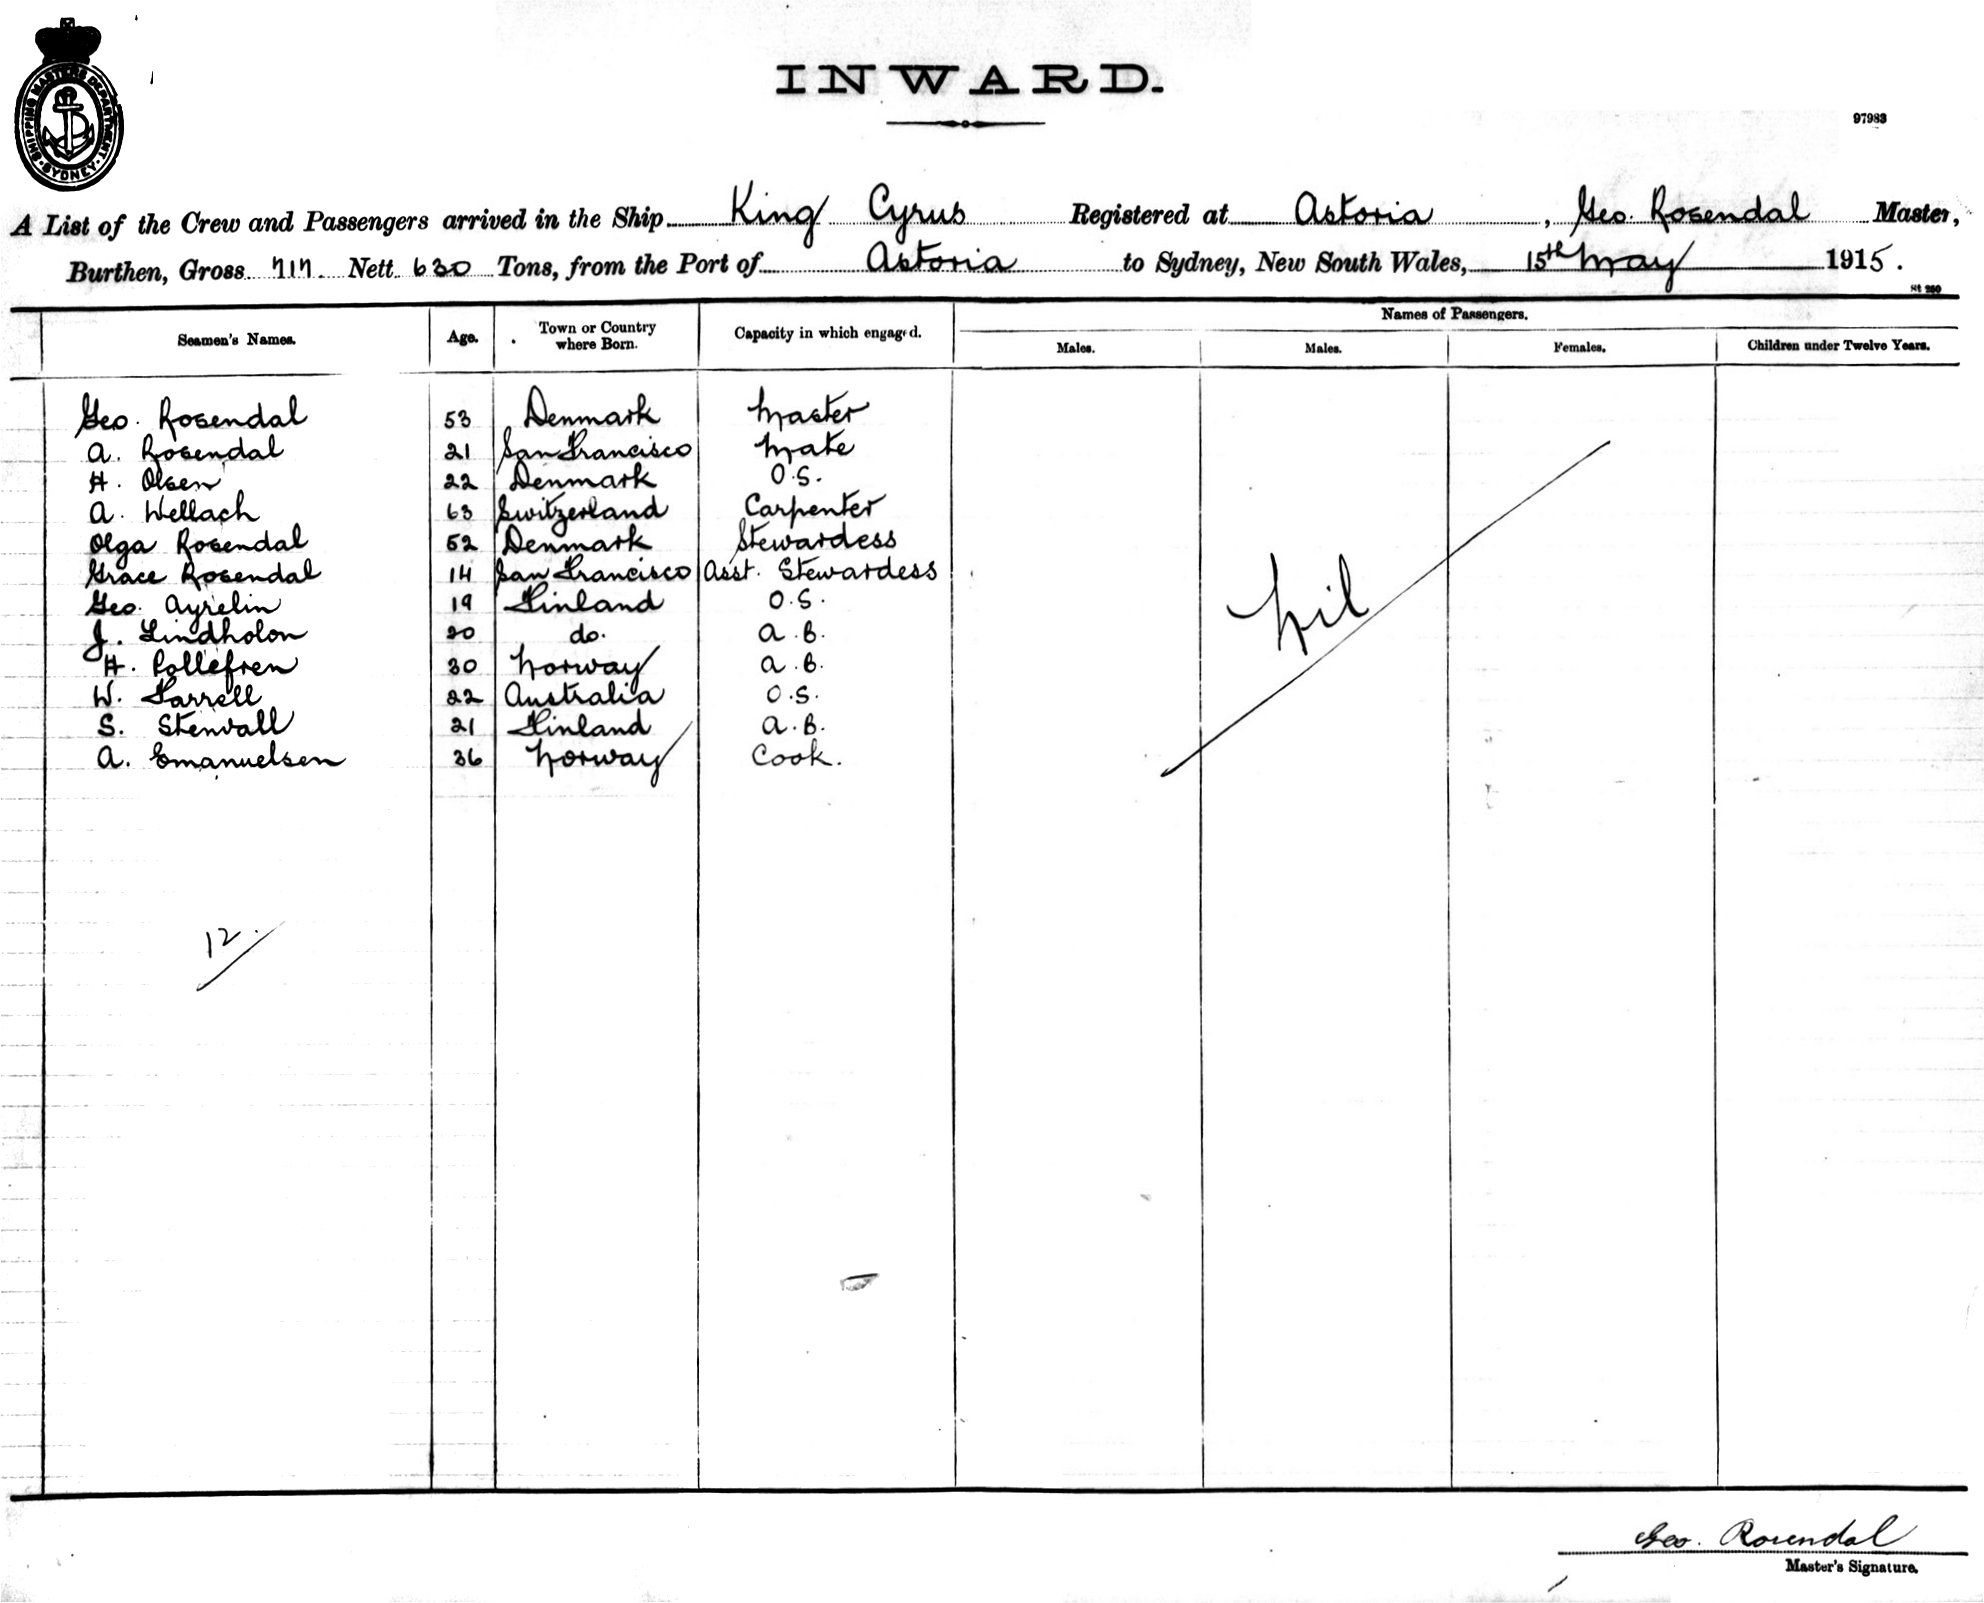 SHIPPING MASTERS DEPARTMENT. SYDNEY.
INWARD.
97983
A List of the Crew and Passengers arrived in the Ship King Cyrus Registered at Astoria, Geo. Rosendal Master,
Burthen, Gross 717. Nett 630 Tons, from the Port of Astoria to Sydney, New South Wales, 15th May 1915.
St 250
Names of Passengers.
Seamen's Names. Age. Town or Country where Born. Capacity in which engaged. Males. Males. Females. Children under Twelve Years.
Geo. Rosendal 53 Denmark Master
A. Rosendal 21 San Francisco Mate
H. Olsen 22 Denmark O.S.
A. Wellach 63 Switzerland Carpenter
Olga Rosendal 52 Denmark Stewardess
Grace Rosendal 14 San Francisco Asst. Stewardess
Geo. Ayrelin 19 Finland O.S.
J. Lindholon 20 do. A.B.
H. Pollefren 30 Norway A.B.
W. Farrell 22 Australia O.S.
S. Stenvall 21 Finland A.B.
A. Emanuelsen 36 Norway Cook.
Nil
12.
Geo. Rosendal
Master's Signature.